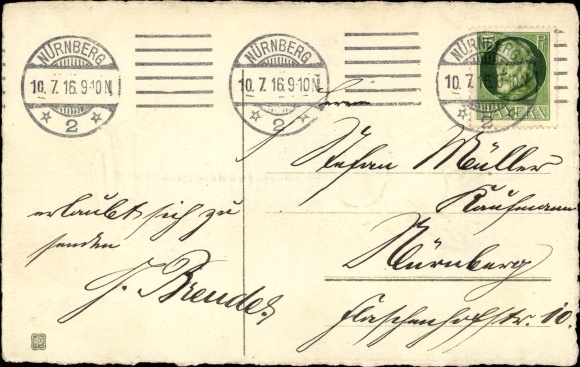 NÜRNBERG
10. 7. 16. 9-10 N.
2
NÜRNBERG
10. 7. 16. 9-10 N.
2
NÜRNBERG
10. 7. 16. 9-10 N.
2
5 PF
BAYERN
Herrn
Stefan Müller
Kaufmann
Nürnberg
Flaschenhofstr. 10.
erlaubt sich zu
senden